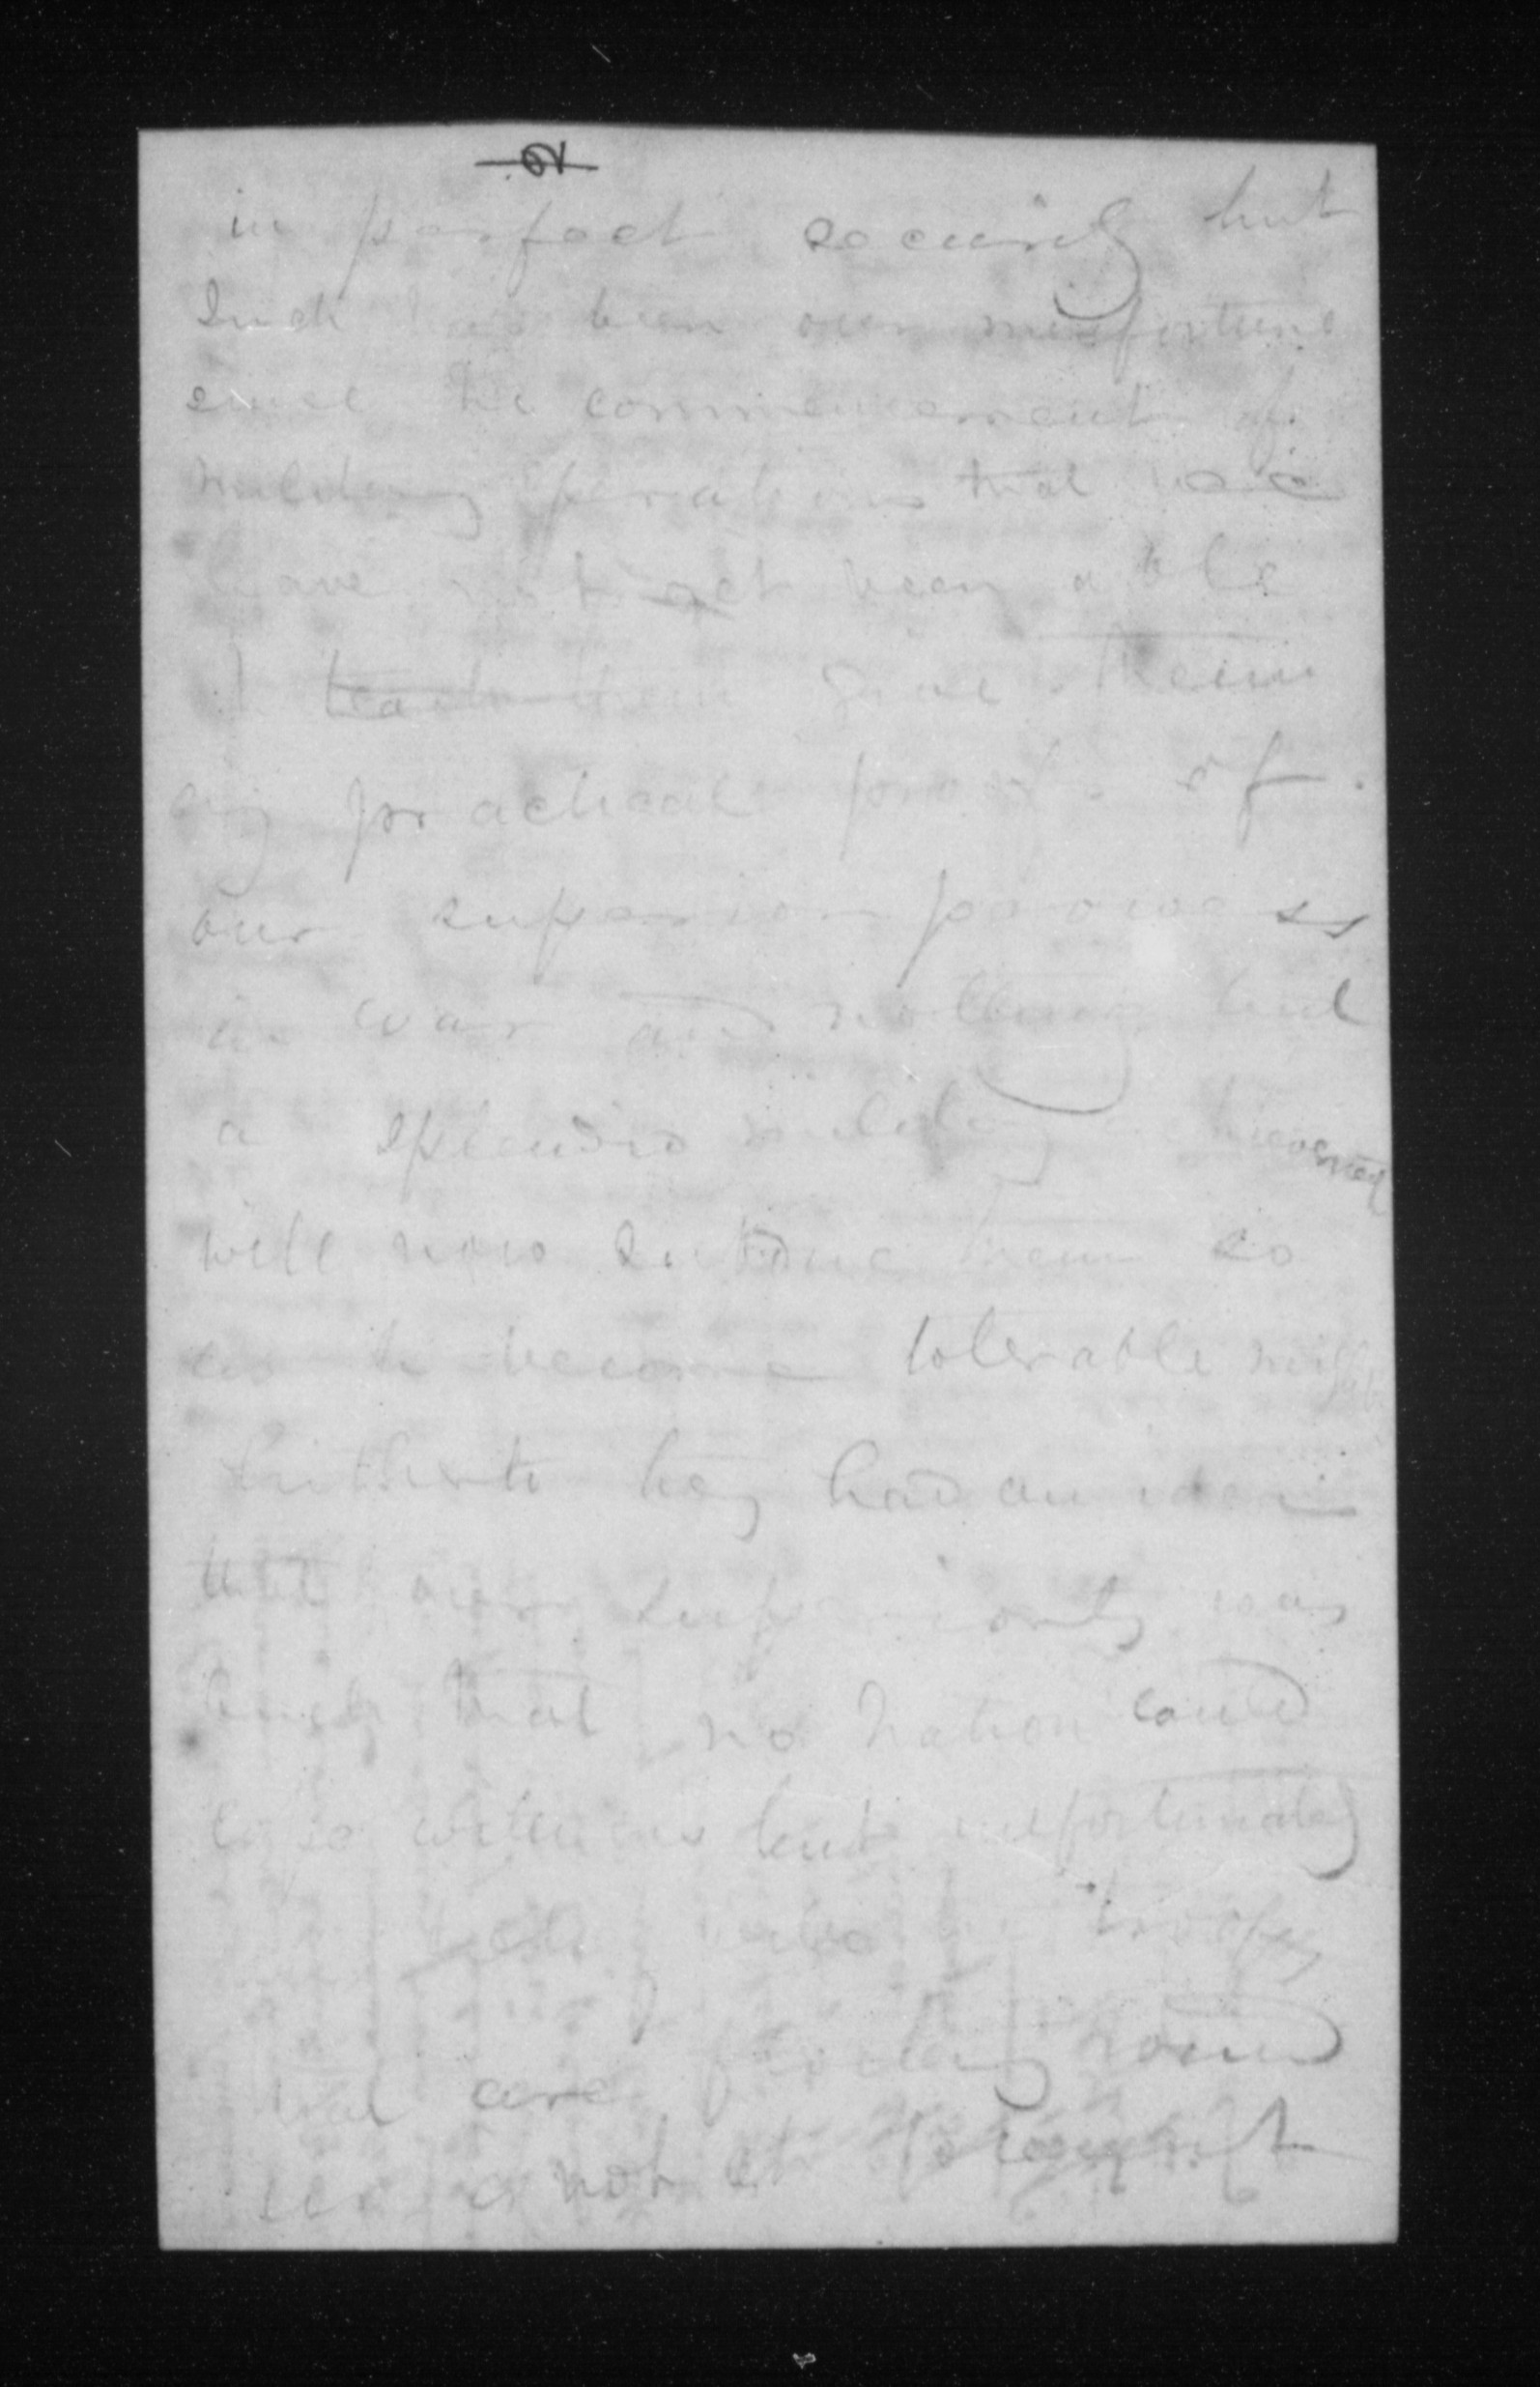 2
in perfect security but
Such has been our misfortune
since the commencement of
military operations that we
have not yet been able
teach them give them
any practical proof of
our superior prowess
in war and nothing but
a splendid military achievement
will now subdue them so
as to become tolerable neigh
hitherto they had an idea
that our superiority was
such that no nation could
cope with us but unfortunately
troops
that are round
not